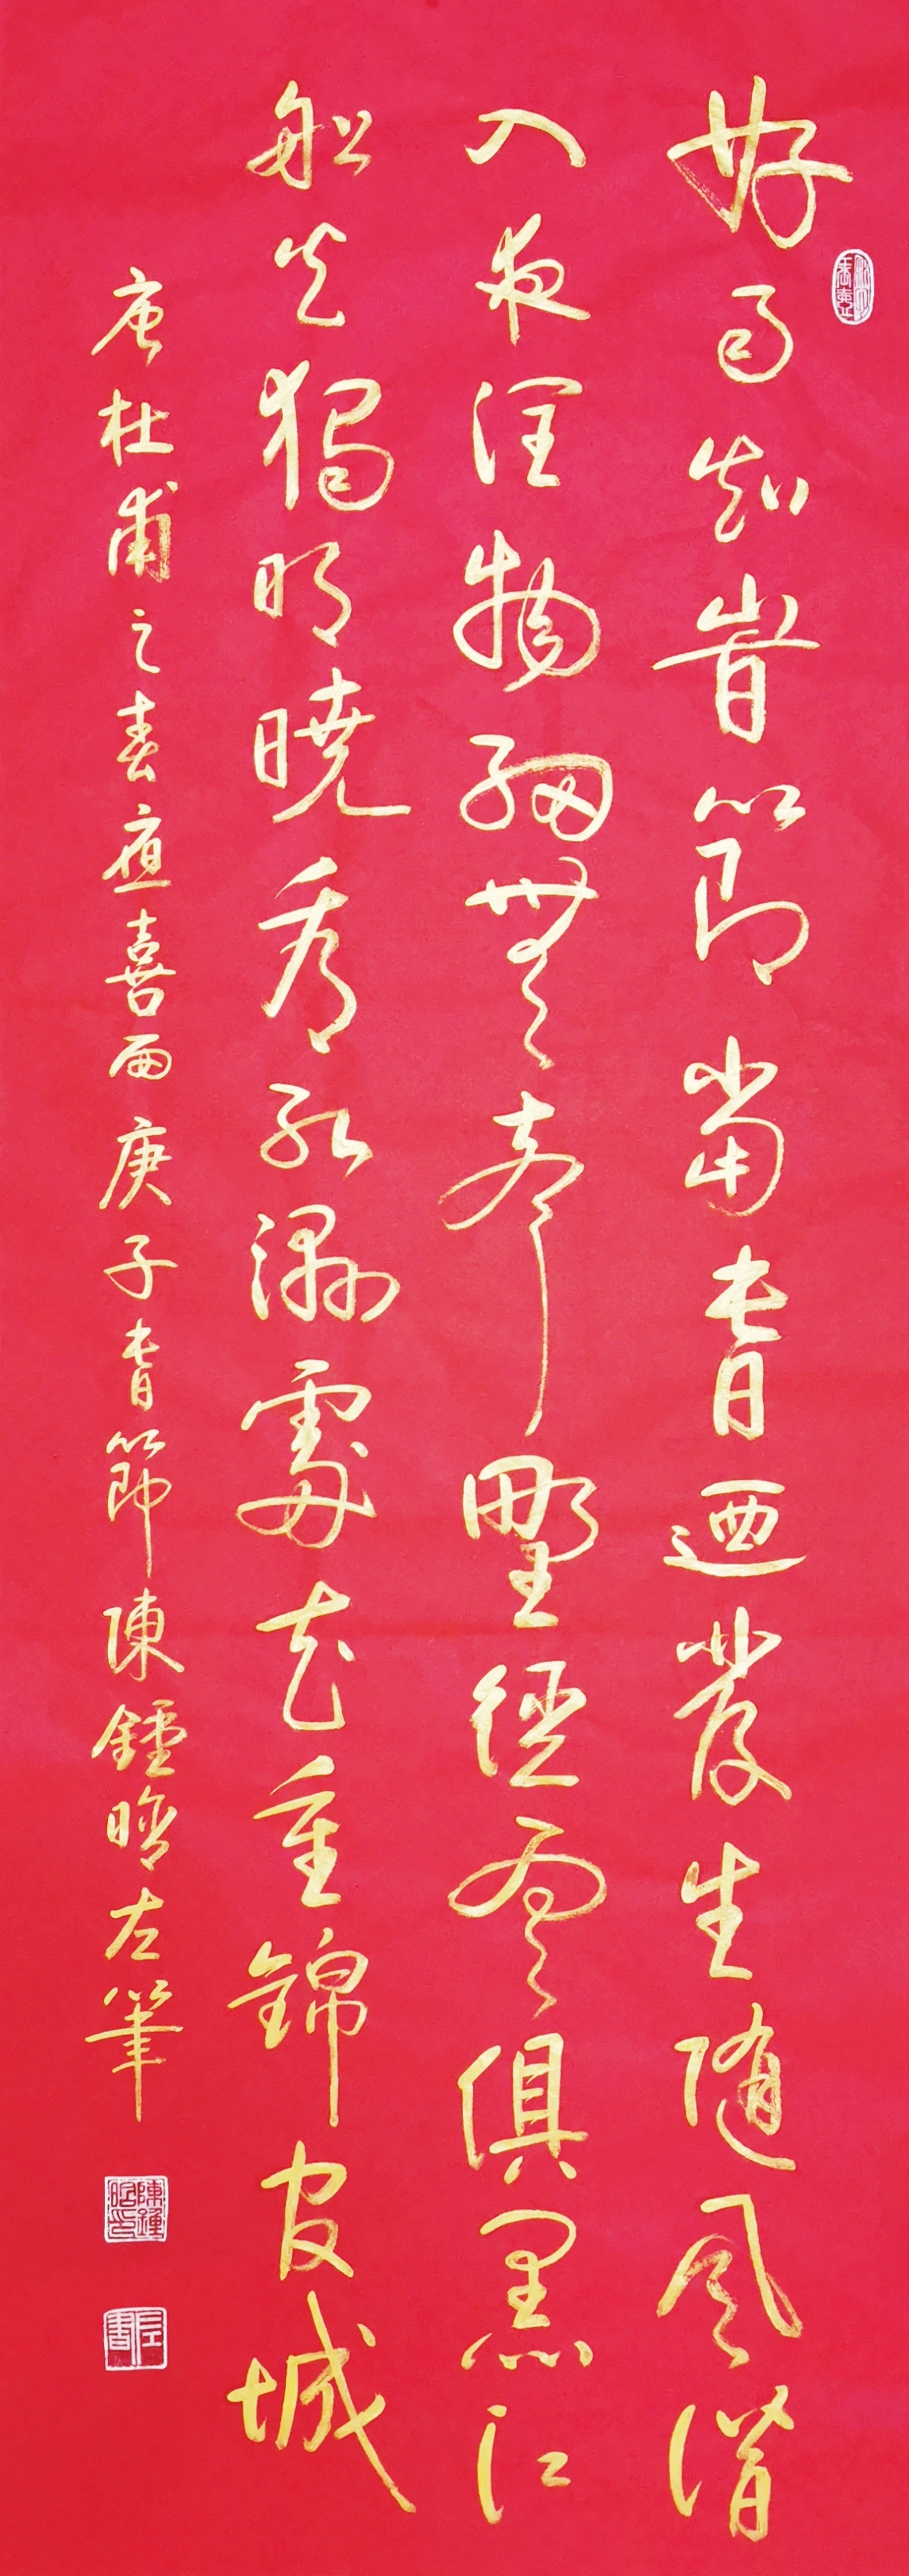 好雨知旹節當旾迺發生隨風潛
入夜潤物細無聲野徑雲俱黑江
船火獨明曉看紅濕處花重錦官城
唐杜甫之春夜喜雨庚子旾節陳鍾左筆
左書